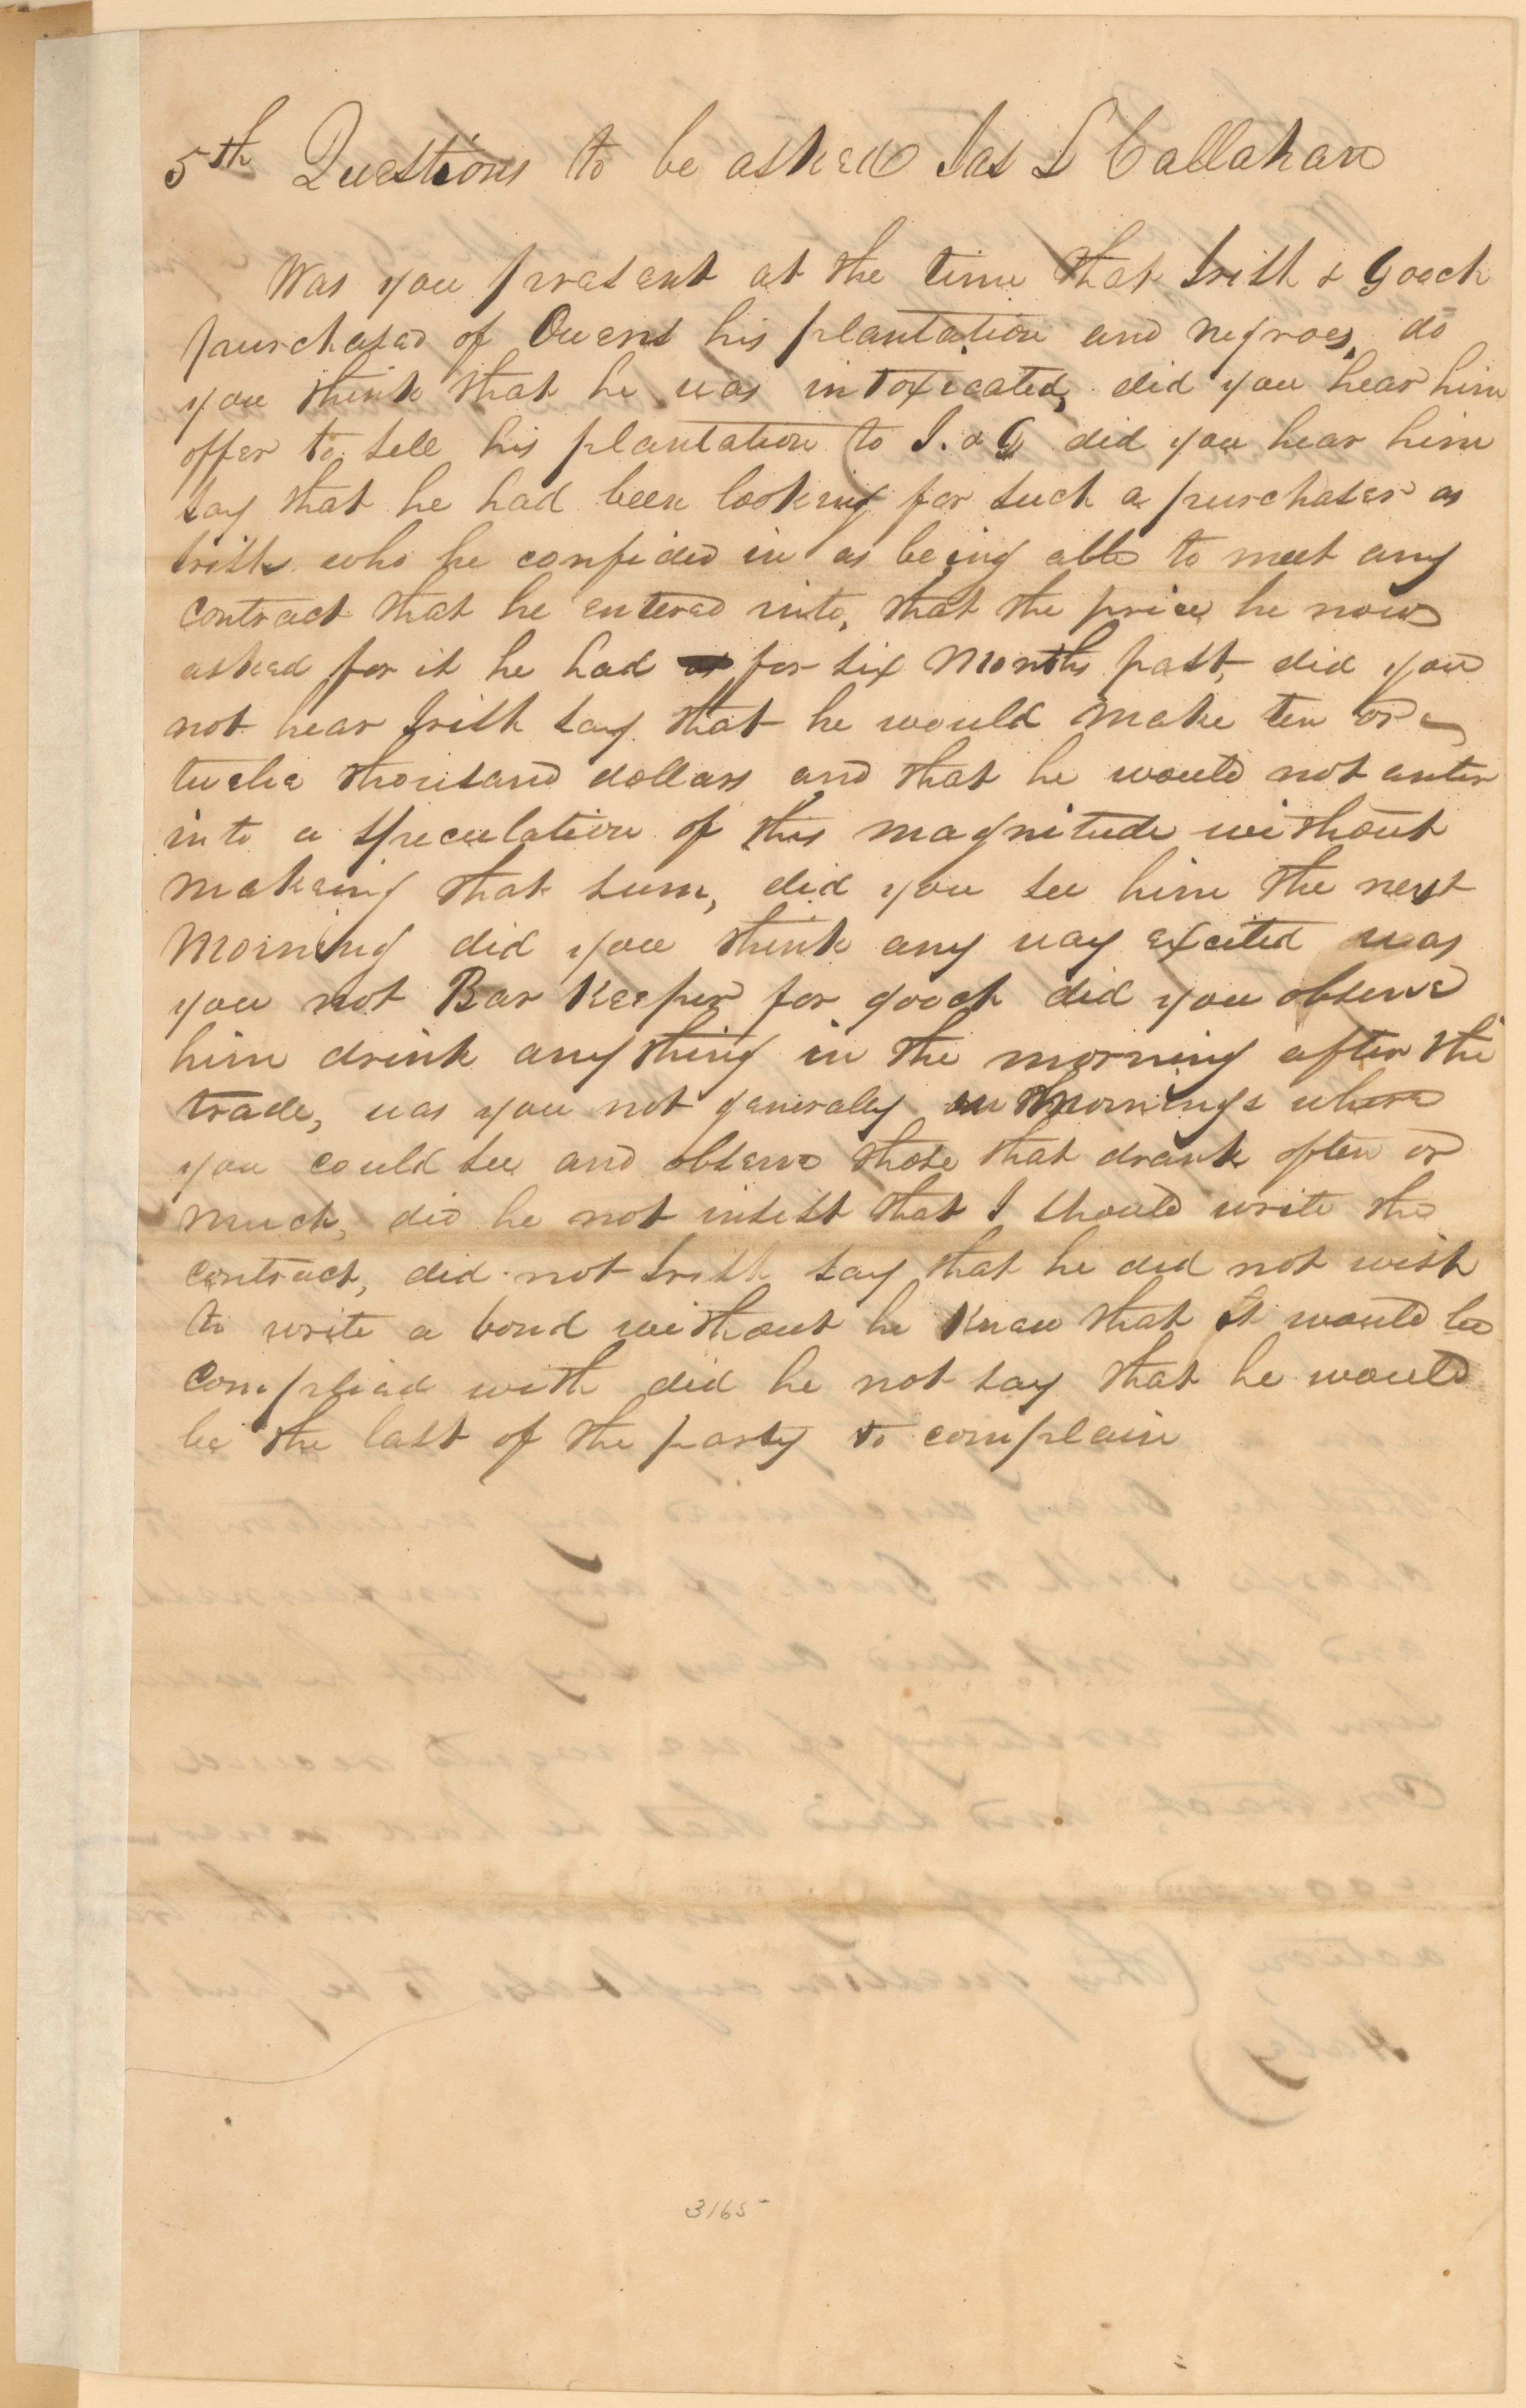 5th Questions to be asked Jas L Callahan
Was you present at the time that Irish & Gooch
purchased of Owens his plantation and negroes, do
you think that he was intoxicated, did you hear him
offer to sell his plantation to I. & G did you hear him
say that he had been looking for such a purchaser as
Irish who he confided in as being able to meet any
contract that he entered into, that the price he now
asked for it he had for six months past, did you
not hear Irish say that he would make ten or
twelve thousand dollars and that he would not enter
into a speculation of this magnitude without
makeing that sum, did you see him the next
morning did you think any way excited was
you not Bar Keeper for gooch did you observe
him drink any thing in the morning after the
trade, was you not generaly in mornings where
you could see and observe those that drank often or
much, did he not insist that I should write the
contract, did not Irish say that he did not wish
to write a bond without he knew that it would be
complied with did he not say that he would
be the last of the party to complain
3165